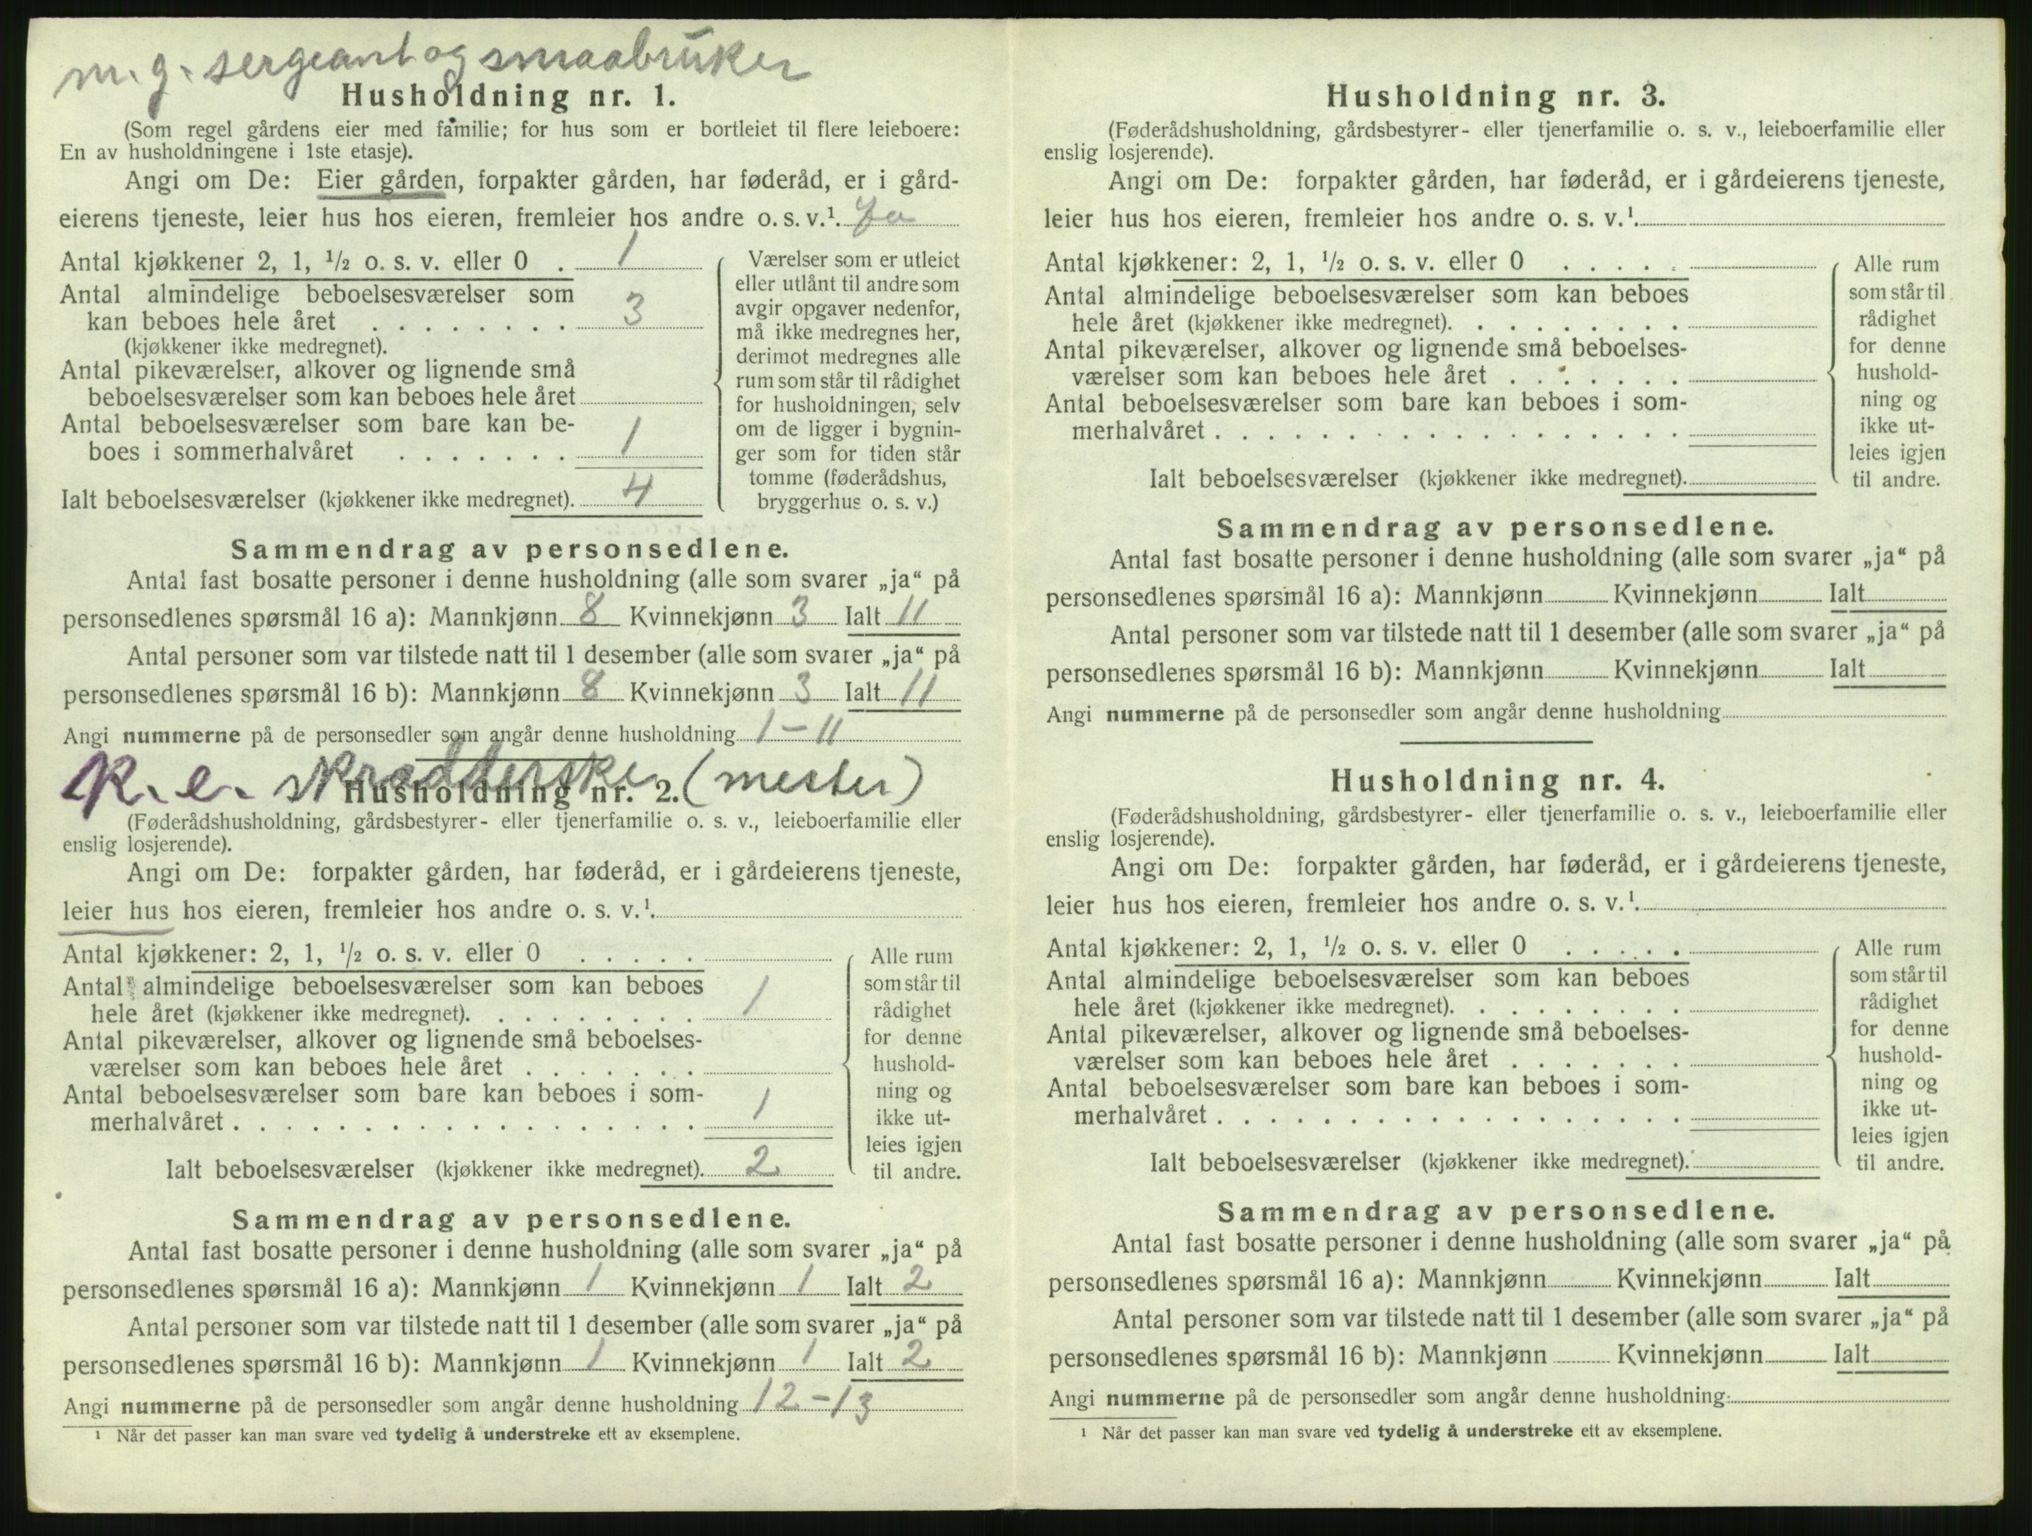 m. g. sergeant og smaabruker
Husholdning nr. 1.
(Som regel gårdens eier med familie; for hus som er bortleiet til flere leieboere:
En av husholdningene i 1ste etasje).
Angi om De: Eier gården, forpakter gården, har føderåd, er i gård-
eierens tjeneste, leier hus hos eieren, fremleier hos andre o. s. v.¹. Ja
Antal kjøkkener 2, 1, ½ o. s. v. eller 0 . 1
Antal almindelige beboelsesværelser som
kan beboes hele året . . . . . . . . 3
(kjøkkener ikke medregnet).
Antal pikeværelser, alkover og lignende små
beboelsesværelser som kan beboes hele året
Antal beboelsesværelser som bare kan be-
boes i sommerhalvåret . . . . . . . 1
Ialt beboelsesværelser (kjøkkener ikke medregnet). 4
Værelser som er utleiet
eller utlånt til andre som
avgir opgaver nedenfor,
må ikke medregnes her,
derimot medregnes alle
rum som står til rådighet
for husholdningen, selv
om de ligger i bygnin-
ger som for tiden står
tomme (føderådshus,
bryggerhus o. s. v.)
Sammendrag av personsedlene.
Antal fast bosatte personer i denne husholdning (alle som svarer „ja“ på
personsedlenes spørsmål 16 a): Mannkjønn 8 Kvinnekjønn 3 Ialt 11
Antal personer som var tilstede natt til 1 desember (alle som svarer „ja“ på
personsedlenes spørsmål 16 b): Mannkjønn 8 Kvinnekjønn 3 Ialt 11
Angi nummerne på de personsedler som angår denne husholdning 1-11
K. e. skrædderske (mester)
Husholdning nr. 2.
(Føderådshusholdning, gårdsbestyrer- eller tjenerfamilie o. s. v., leieboerfamilie eller
enslig losjerende).
Angi om De: forpakter gården, har føderåd, er i gårdeierens tjeneste,
leier hus hos eieren, fremleier hos andre o. s. v.¹.
Antal kjøkkener: 2, 1, ½ o. s. v. eller 0 . . . . .
Antal almindelige beboelsesværelser som kan beboes
hele året (kjøkkener ikke medregnet). . . . . . . . . 1
Antal pikeværelser, alkover og lignende små beboelses-
værelser som kan beboes hele året . . . . . . .
Antal beboelsesværelser som bare kan beboes i som-
merhalvåret . . . . . . . . . . . . . . . . . . 1
Ialt beboelsesværelser (kjøkkener ikke medregnet). 2
Alle rum
som står til
rådighet
for denne
hushold-
ning og
ikke ut-
leies igjen
til andre.
Sammendrag av personsedlene.
Antal fast bosatte personer i denne husholdning (alle som svarer „ja“ på
personsedlenes spørsmål 16 a): Mannkjønn 1 Kvinnekjønn 1 Ialt 2
Antal personer som var tilstede natt til 1 desember (alle som svarer „ja“ på
personsedlenes spørsmål 16 b): Mannkjønn 1 Kvinnekjønn 1 Ialt 2
Angi nummerne på de personsedler som angår denne husholdning 12-13
¹ Når det passer kan man svare ved tydelig å understreke ett av eksemplene.
Husholdning nr. 3.
(Føderådshusholdning, gårdsbestyrer- eller tjenerfamilie o. s. v., leieboerfamilie eller
enslig losjerende).
Angi om De: forpakter gården, har føderåd, er i gårdeierens tjeneste,
leier hus hos eieren, fremleier hos andre o. s. v.¹.
Antal kjøkkener: 2, 1, ½ o. s. v. eller 0 . . . . .
Antal almindelige beboelsesværelser som kan beboes
hele året (kjøkkener ikke medregnet). . . . . . . . .
Antal pikeværelser, alkover og lignende små beboelses-
værelser som kan beboes hele året . . . . . . .
Antal beboelsesværelser som bare kan beboes i som-
merhalvåret . . . . . . . . . . . . . . . . . .
Ialt beboelsesværelser (kjøkkener ikke medregnet).
Alle rum
som står til
rådighet
for denne
hushold-
ning og
ikke ut-
leies igjen
til andre.
Sammendrag av personsedlene.
Antal fast bosatte personer i denne husholdning (alle som svarer „ja“ på
personsedlenes spørsmål 16 a): Mannkjønn Kvinnekjønn Ialt
Antal personer som var tilstede natt til 1 desember (alle som svarer „ja“ på
personsedlenes spørsmål 16 b): Mannkjønn Kvinnekjønn Ialt
Angi nummerne på de personsedler som angår denne husholdning
Husholdning nr. 4.
(Føderådshusholdning, gårdsbestyrer- eller tjenerfamilie o. s. v., leieboerfamilie eller
enslig losjerende).
Angi om De: forpakter gården, har føderåd, er i gårdeierens tjeneste,
leier hus hos eieren, fremleier hos andre o. s. v.¹.
Antal kjøkkener: 2, 1, ½ o. s. v. eller 0 . . . . .
Antal almindelige beboelsesværelser som kan beboes
hele året (kjøkkener ikke medregnet). . . . . . . . .
Antal pikeværelser, alkover og lignende små beboelses-
værelser som kan beboes hele året . . . . . . .
Antal beboelsesværelser som bare kan beboes i som-
merhalvåret . . . . . . . . . . . . . . . . . .
Ialt beboelsesværelser (kjøkkener ikke medregnet).
Alle rum
som står til
rådighet
for denne
hushold-
ning og
ikke ut-
leies igjen
til andre.
Sammendrag av personsedlene.
Antal fast bosatte personer i denne husholdning (alle som svarer „ja“ på
personsedlenes spørsmål 16 a): Mannkjønn Kvinnekjønn Ialt
Antal personer som var tilstede natt til 1 desember (alle som svarer „ja“ på
personsedlenes spørsmål 16 b): Mannkjønn Kvinnekjønn Ialt
Angi nummerne på de personsedler som angår denne husholdning
¹ Når det passer kan man svare ved tydelig å understreke ett av eksemplene.